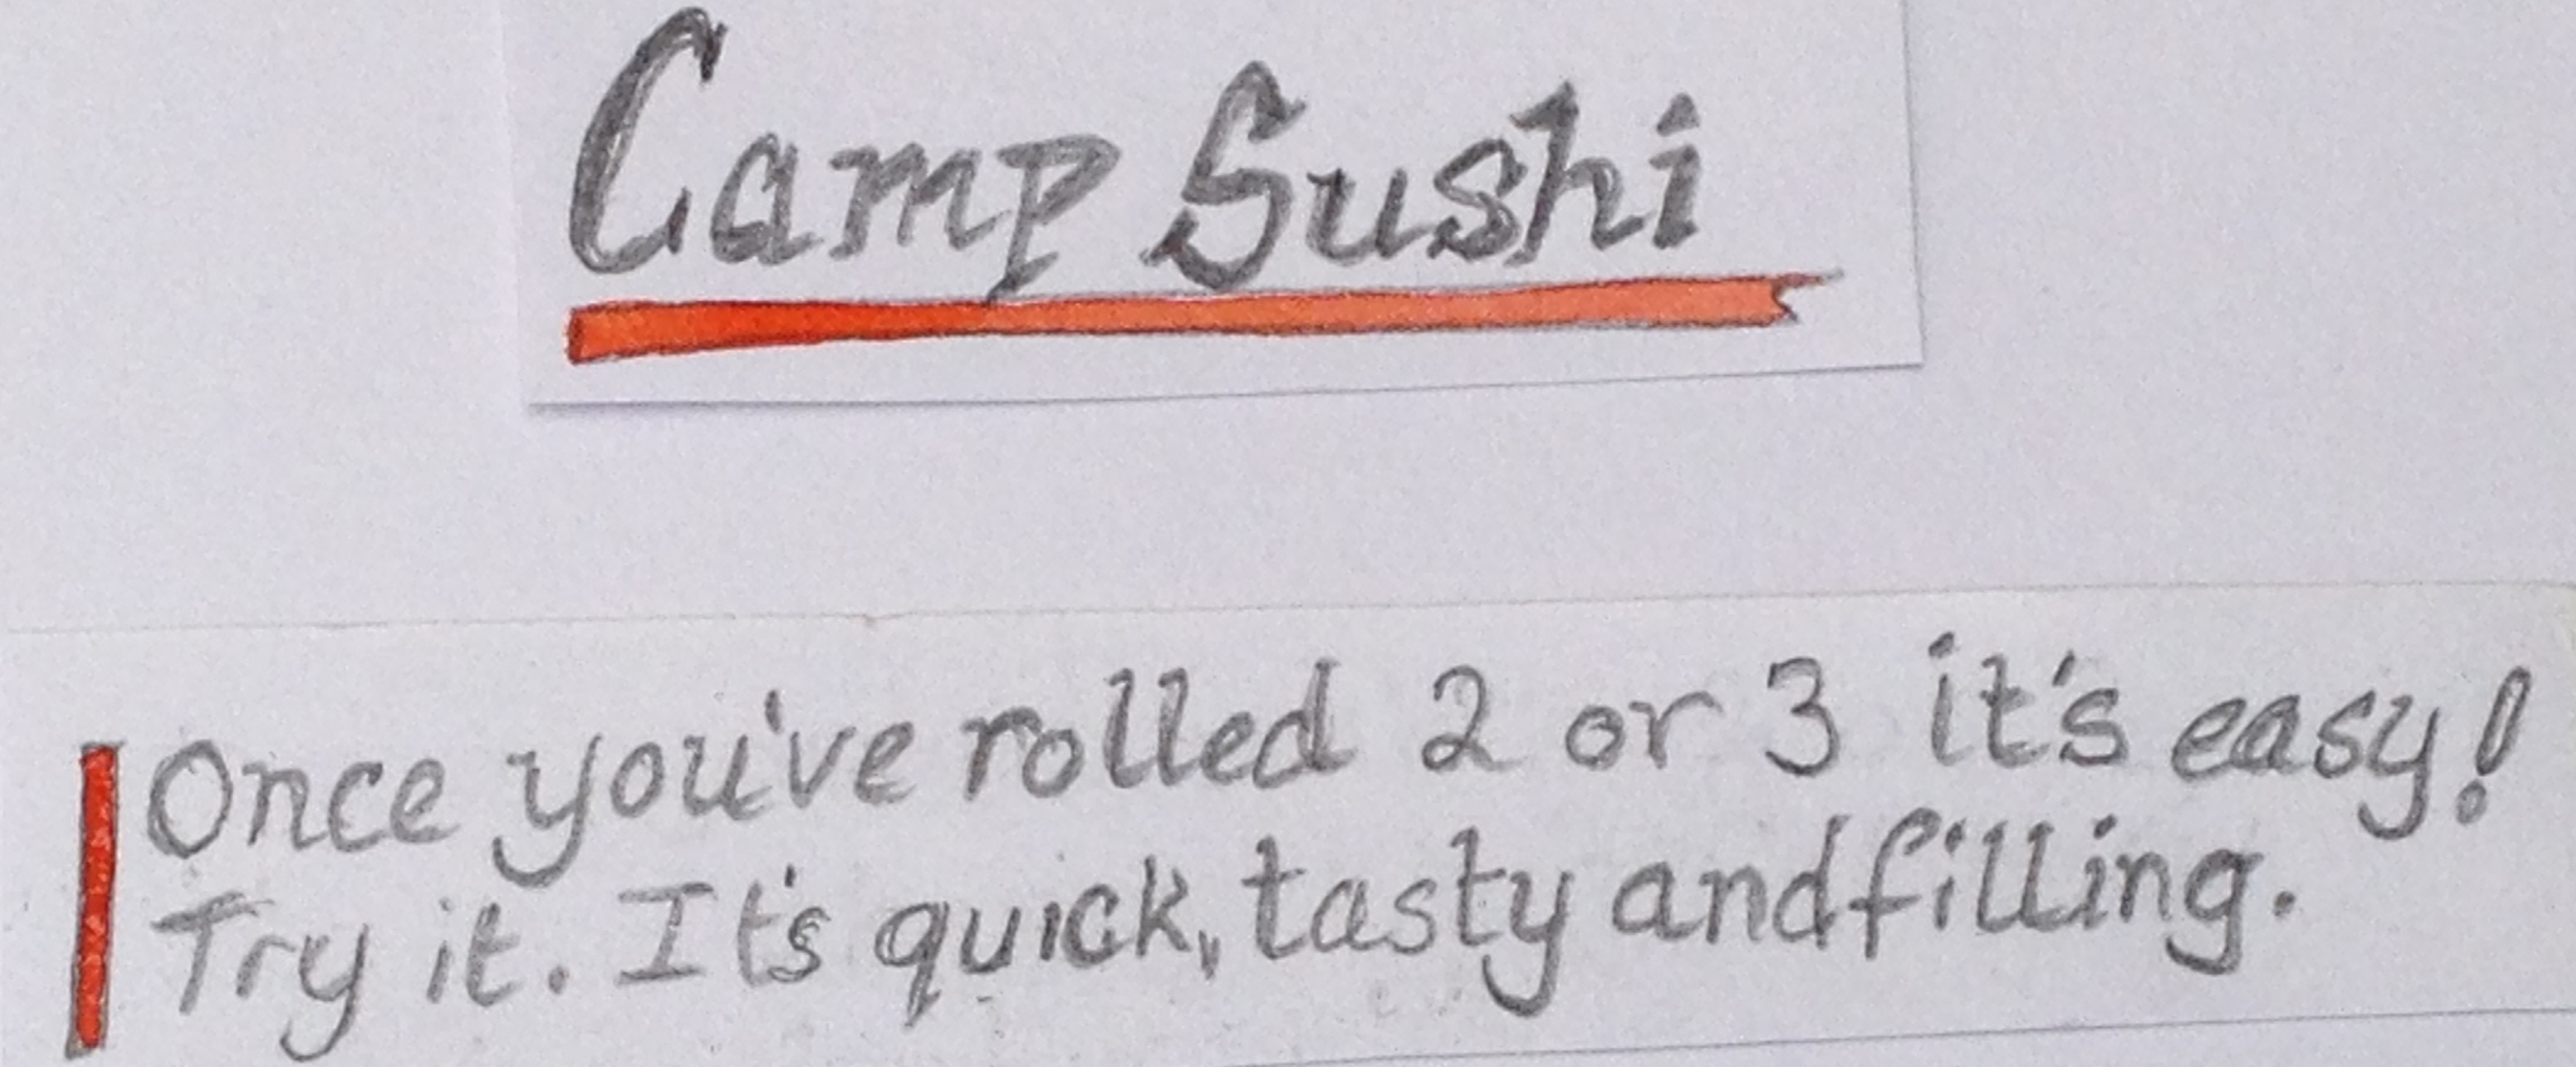 Camp Sushi
Once you've rolled 2 or 3 it's easy!
Try it. It's quick, tasty and filling.